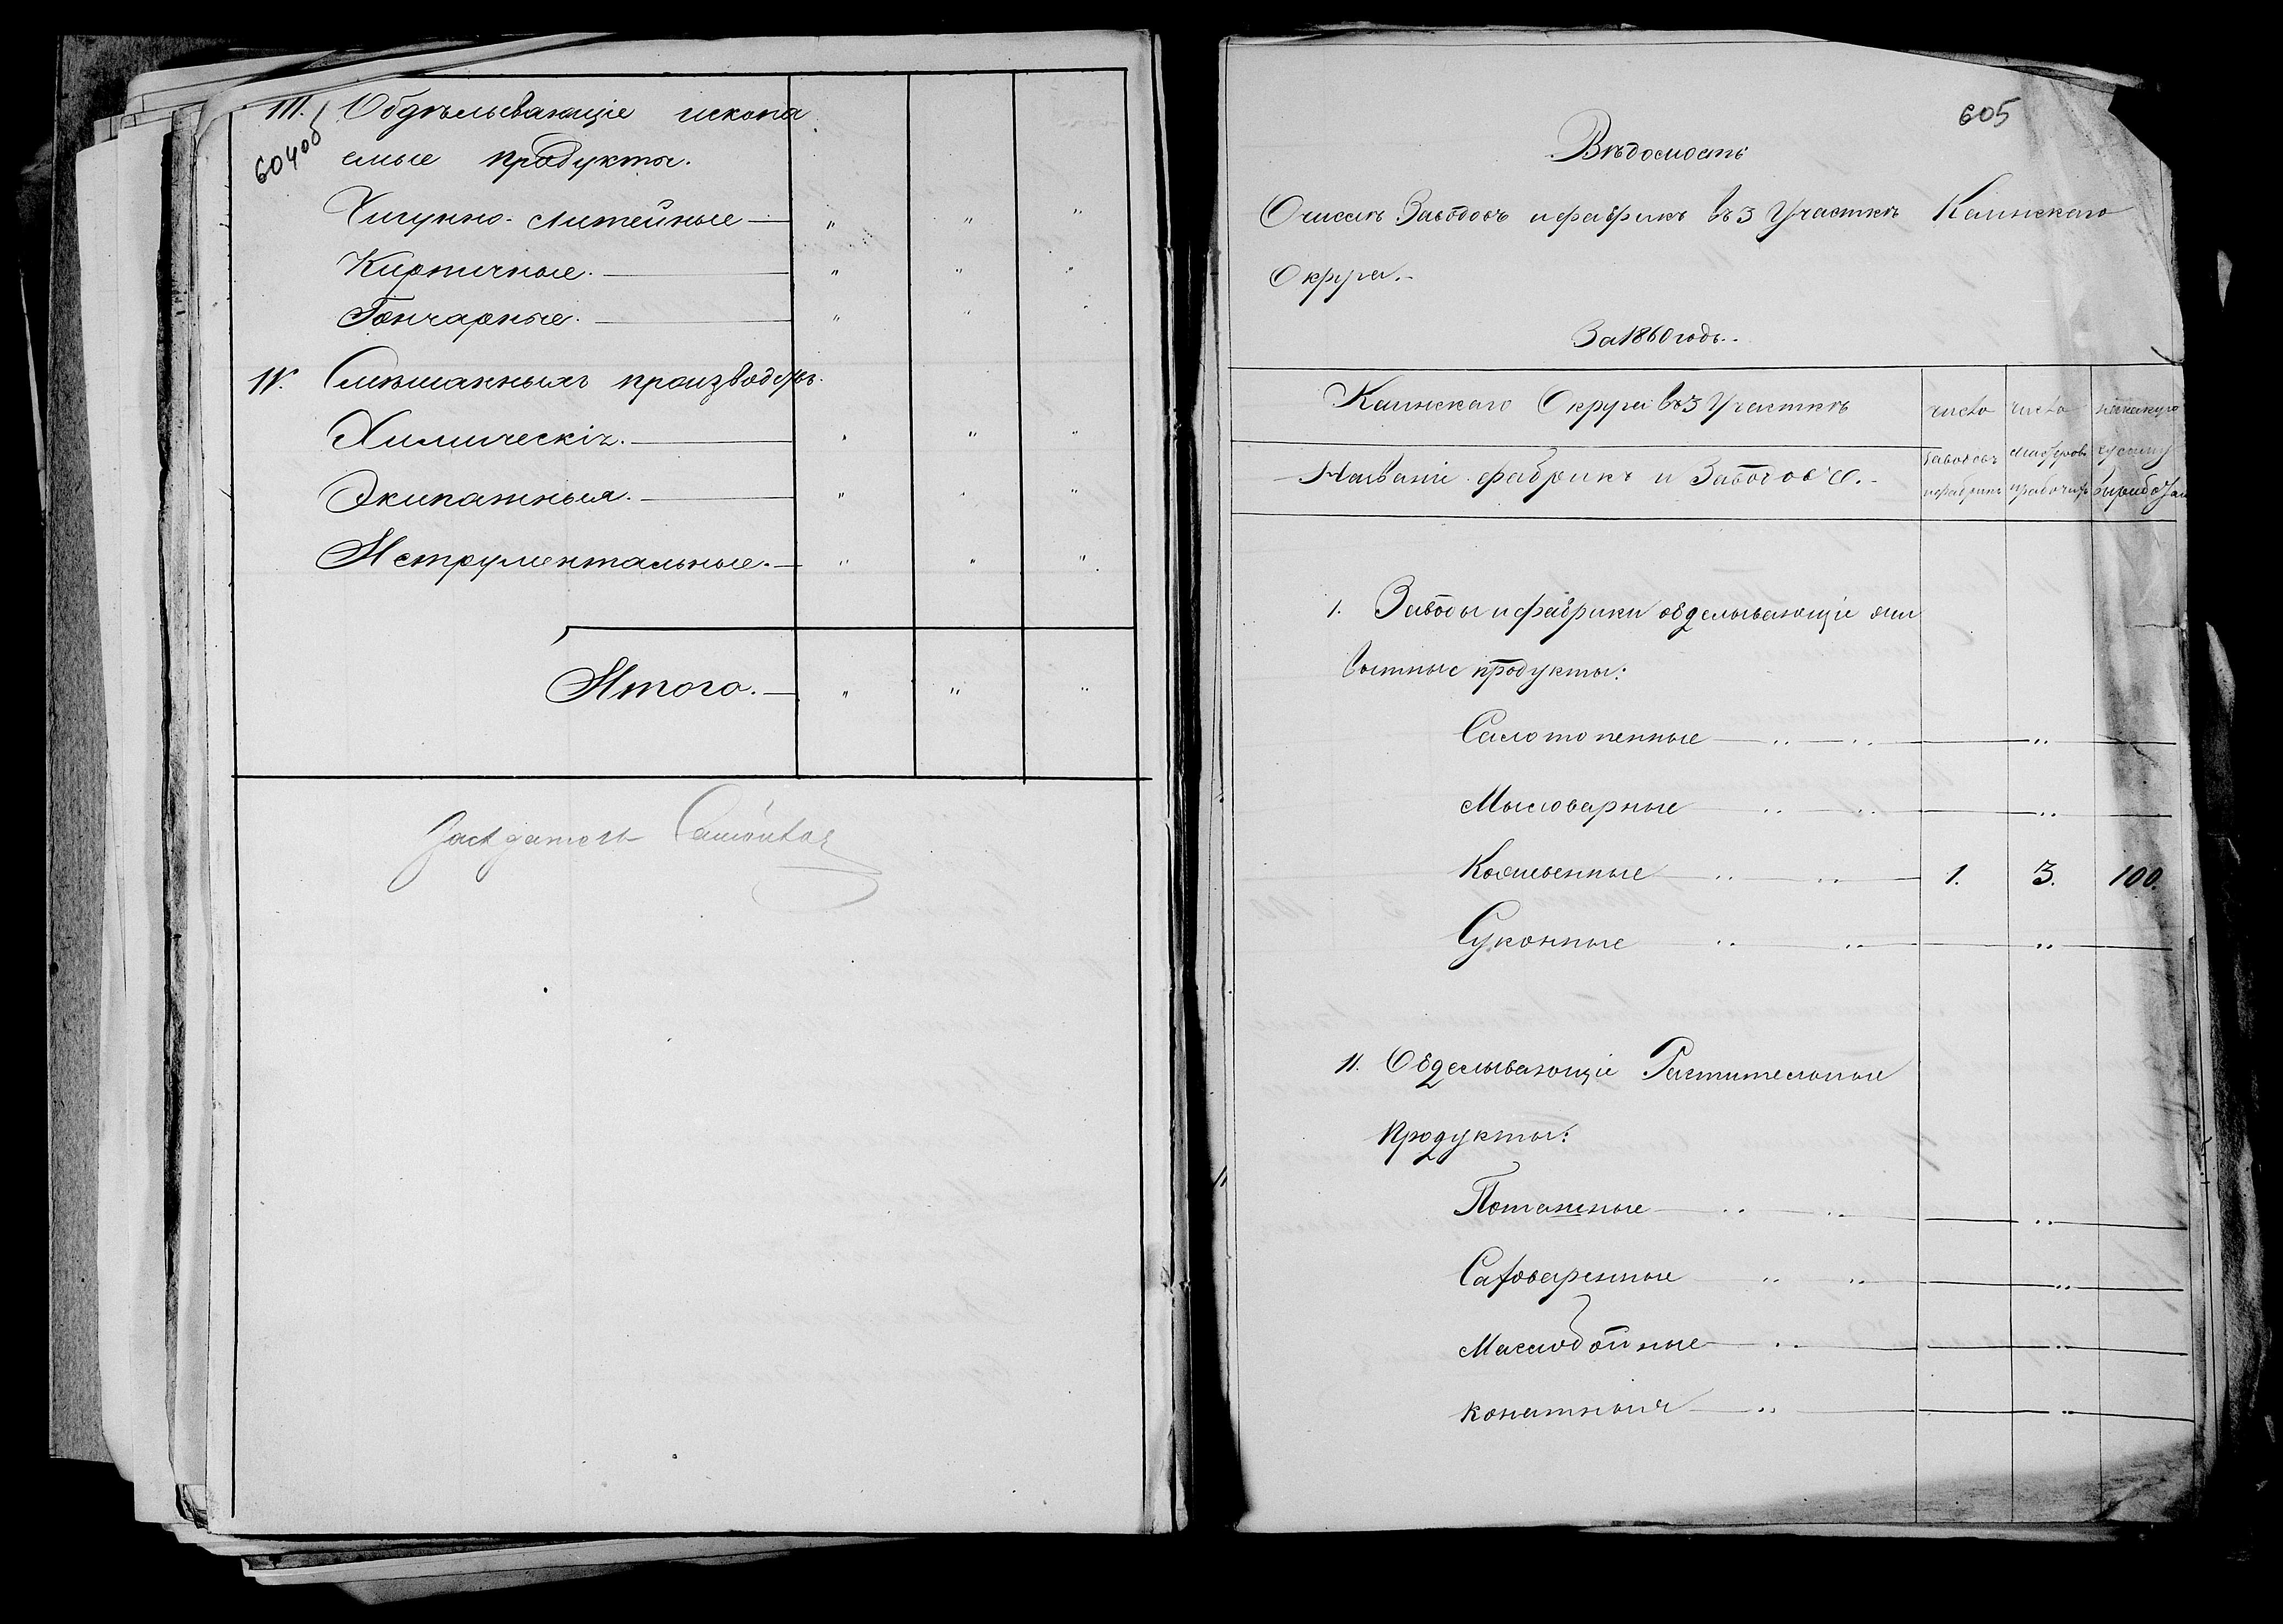 604об
III. Обдѣлывающіе ископа
емые продукты.
Чигунно-литейные — „ „ „
Кирпичные. — „ „ „
Гончарные. — „ „ „
IV. Смѣшанныхъ производствъ.
Химическія. — „ „ „
Экипажныя. — „ „ „
Иструментальные. — „ „ „
Итого. — „ „ „
605
Вѣдомость
О числѣ Заводовъ и фабрикъ въ 3 Участкѣ Каинскаго
Округа.
За 1860 годъ.
Каинскаго Округа въ 3 Участкѣ
Названіе фабрикъ и Заводовъ.
число заводовъ и фабрикъ
число мастеровъ и рабочихъ
на какую сумму
1. Заводы и фабрики обделывающіе жи
вотные продукты:
Салотопенные — „ — „ — „
Мыловарные — „ — „ — „
Кожевенные — „ — „ — 1. 3. 100.
Суконные „ — „ — „
II. Обделывающіе Растительные
продукты:
Поташные — „ — „ — „
Саховаренные — „ — „ — „
Маслобойные — „ — „
конатныя — „ — „